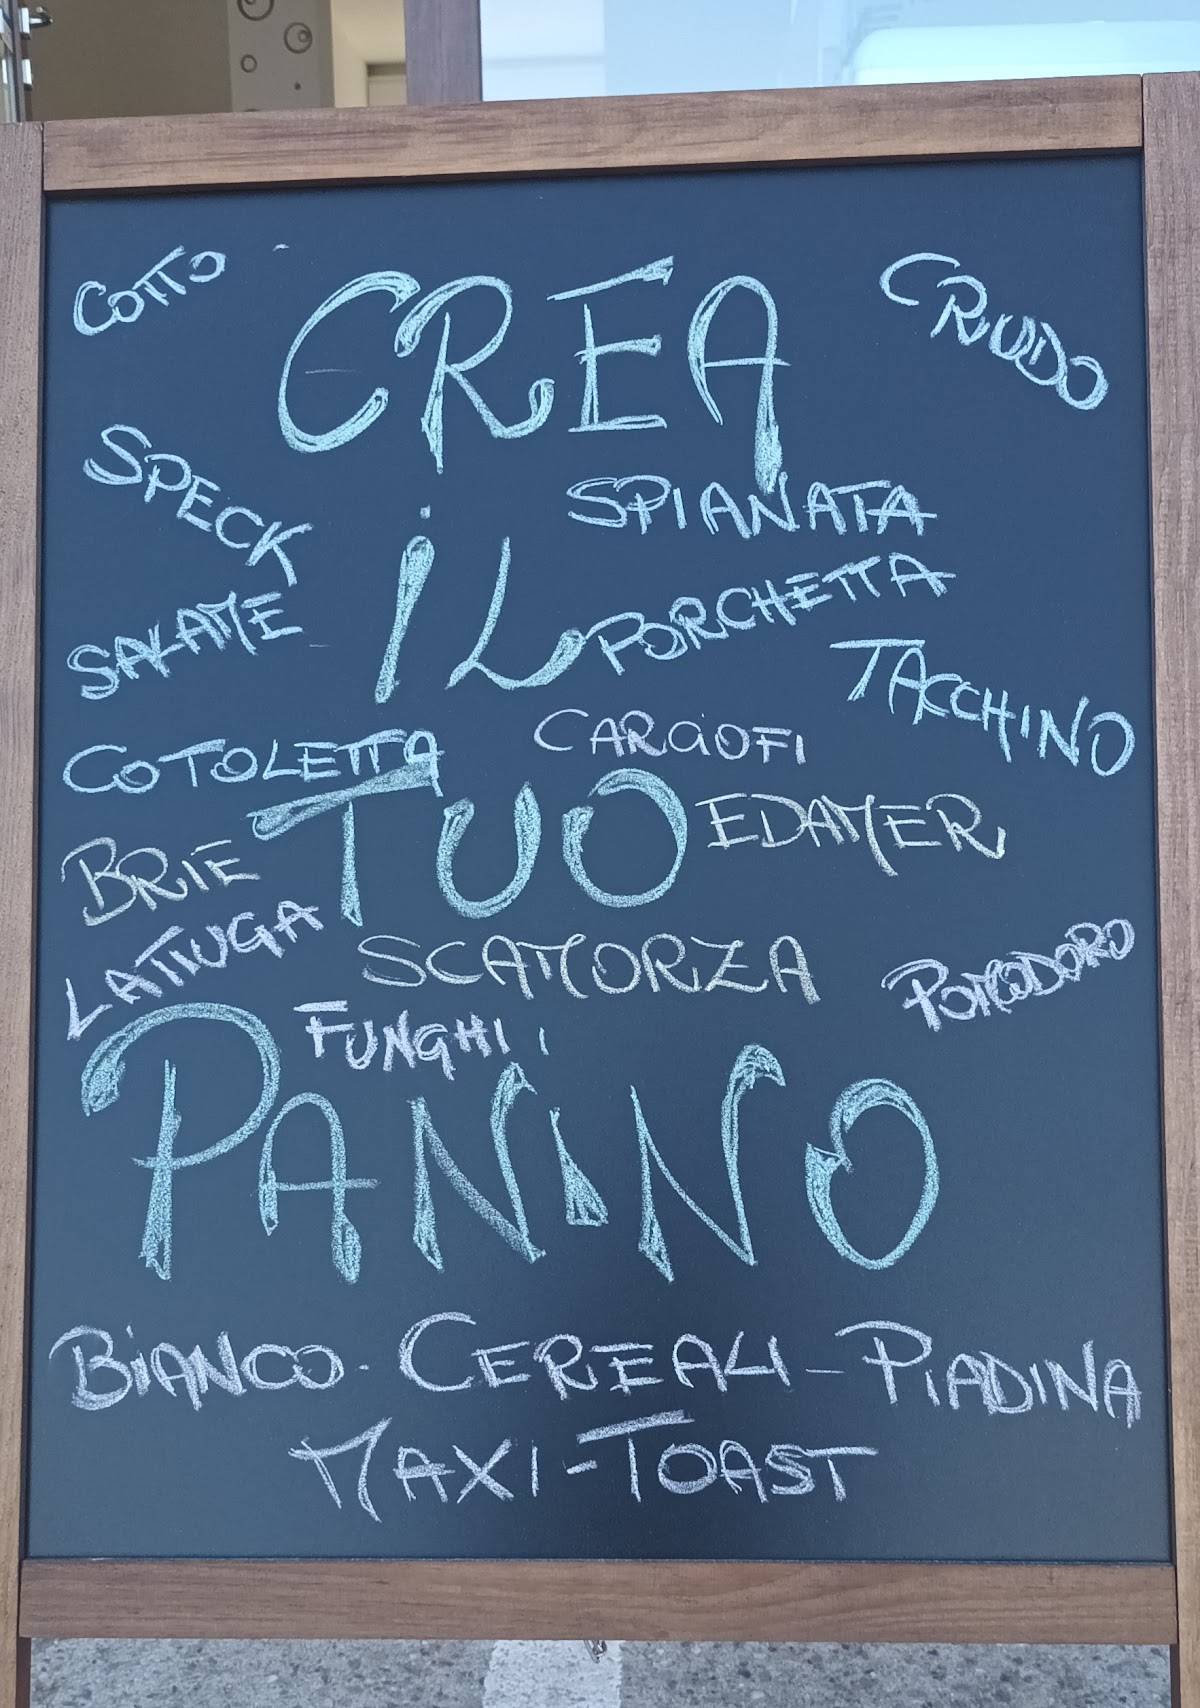 COTTO
CREA
CRUDO
SPECK
SPIANATA
SALAME
iL
PORCHETTA
TACCHINO
COTOLETTA
CARCiOFI
TUO
EDAMER
BRIE
LATTUGA
SCAMORZA
POMODORO
FUNGHI
PANiNO
BiANCO - CEREALI - PiADINA
MAXi - TOAST